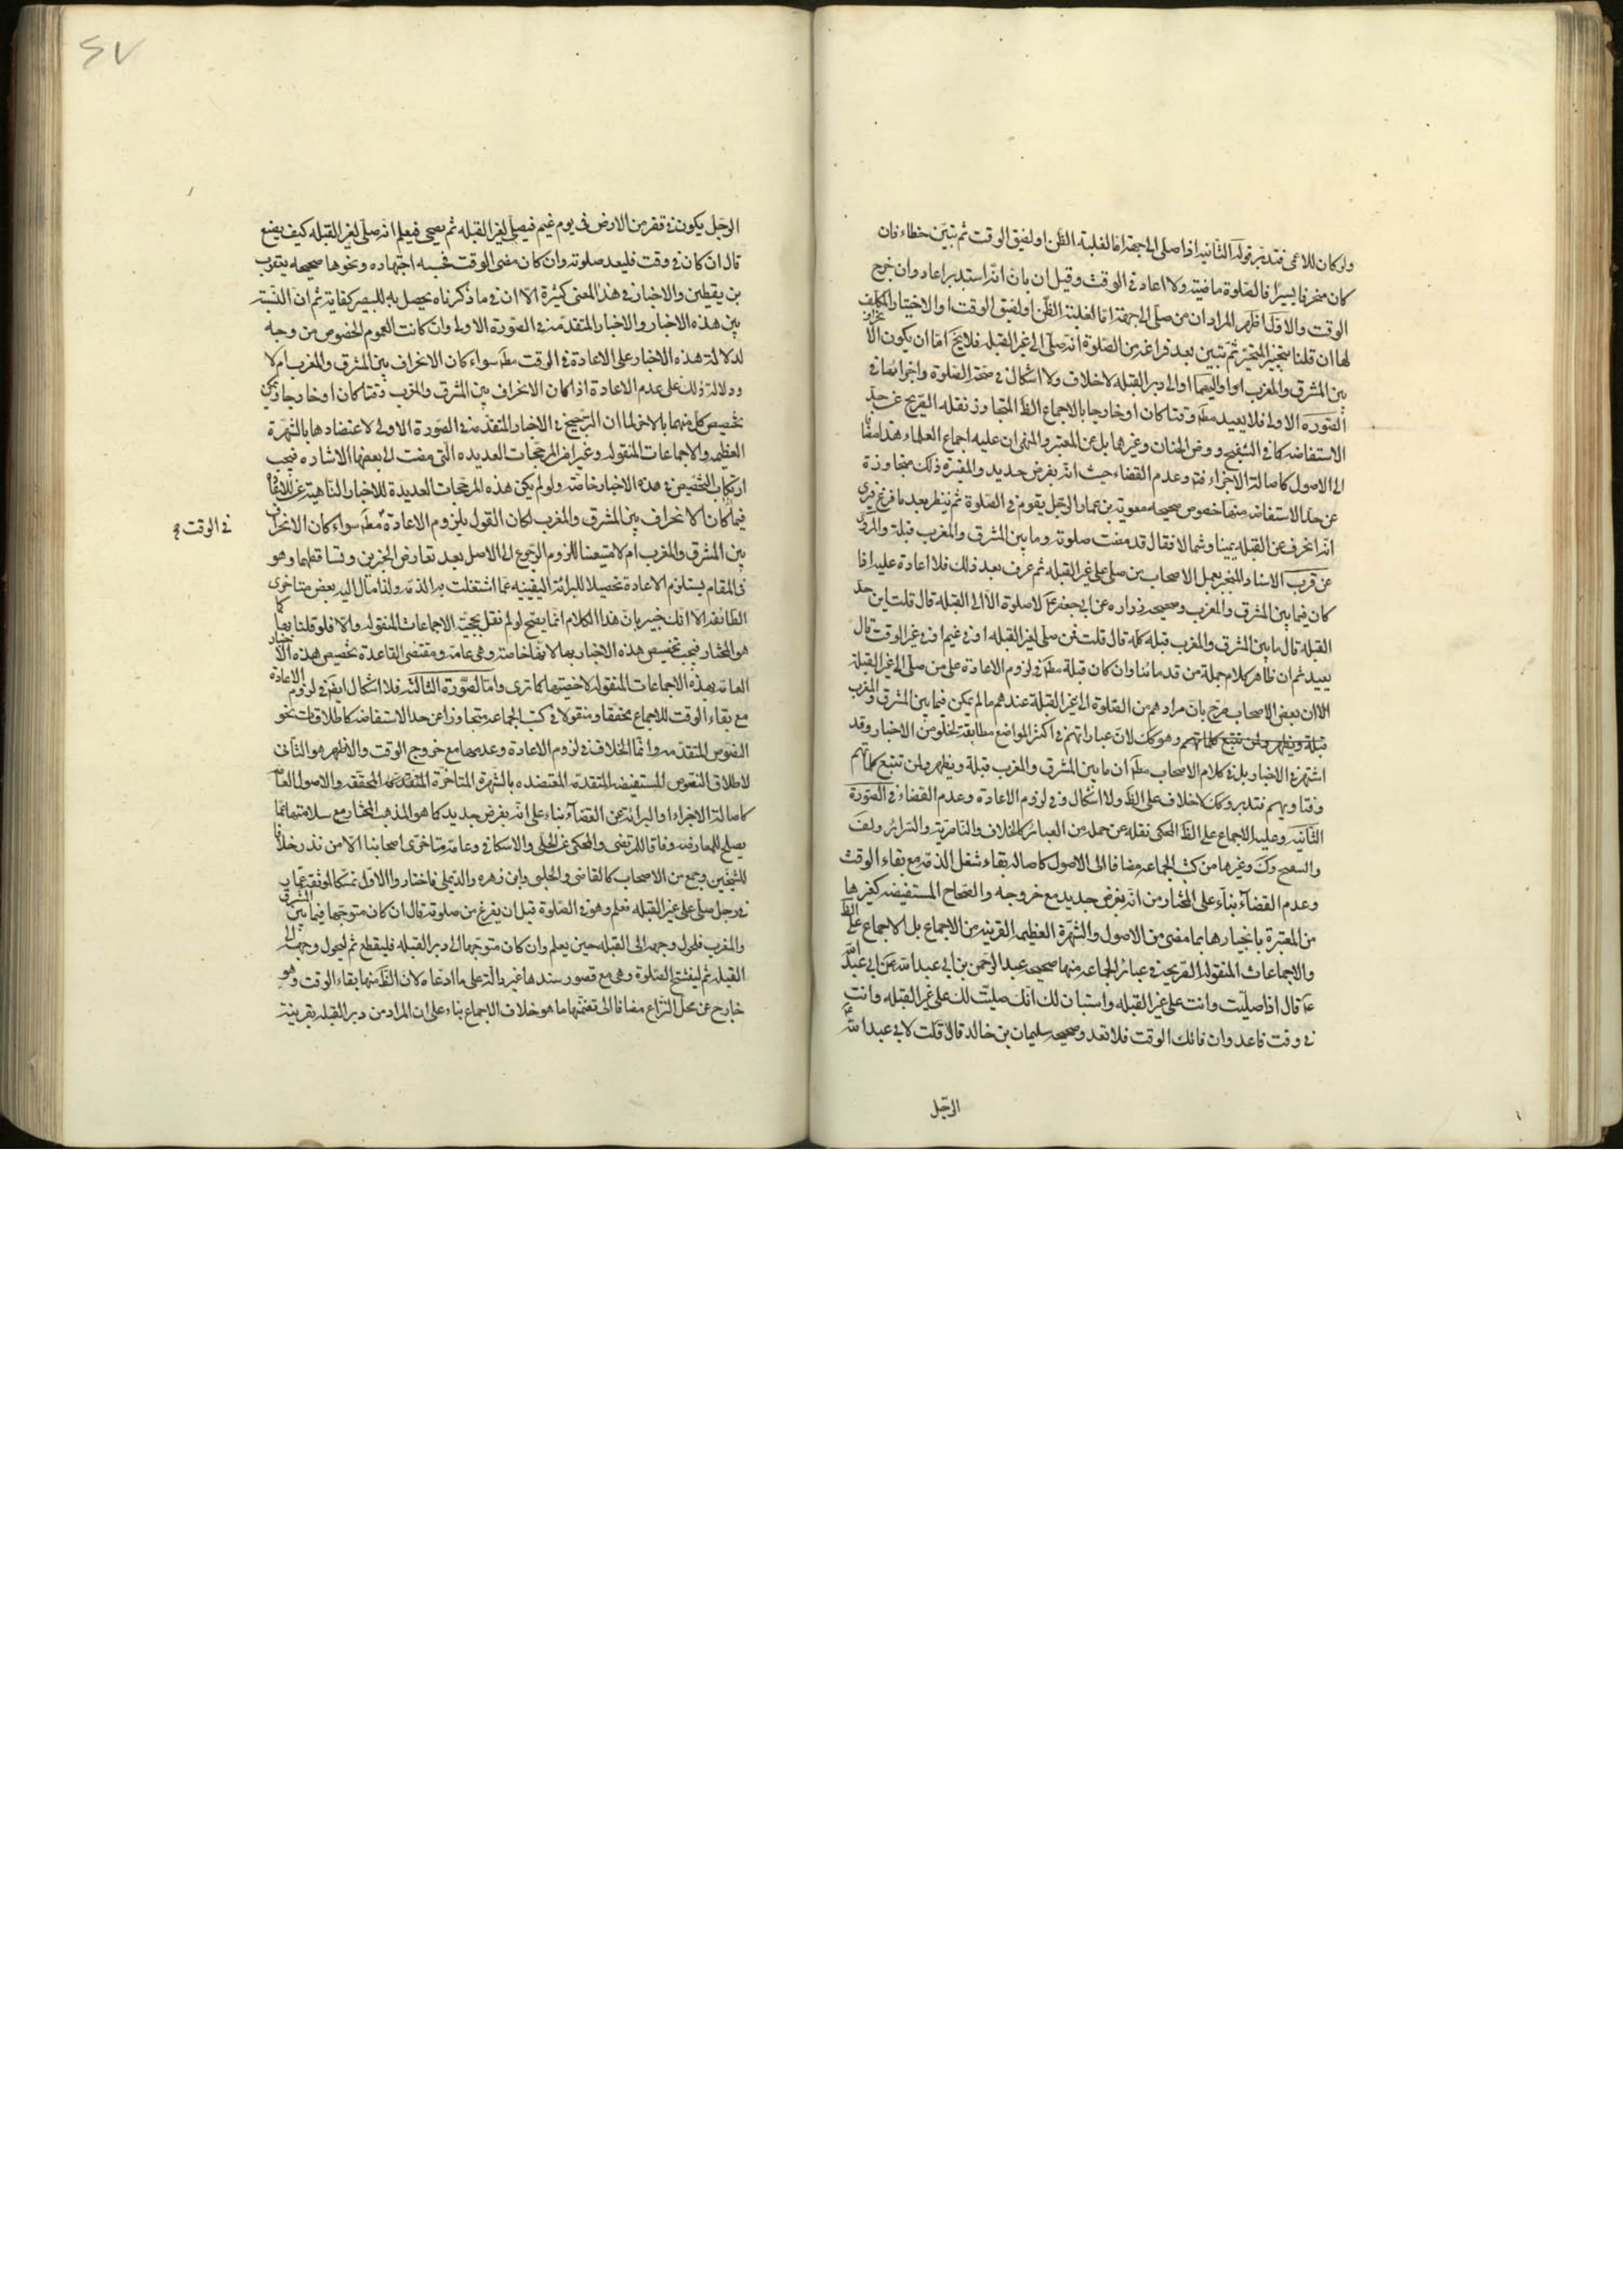 ولو كان للاعمى فتدبر قوله الثانيه اذا صلى الى جهة اما لغلبة الظن او لضيق الوقت ثم تبين خطاءه فان
كان منحرفا يسيرا فالصلوة ماضية والا اعاد في الوقت وقيل ان بان انه استدبر اعاد وان خرج
الوقت والاول اظهر المراد ان من صلى الى جهة اما لغلبة الظن او لضيق الوقت او لاختيار المكلف
لها ان قلنا بتخيير المتحير ثم تبين بعد فراغه من الصلوة انه صلى الى غير القبله فلا يخ اما ان يكون الانحراف
بين المشرق والمغرب او او اليهما او الى دبر القبله لا خلاف ولا اشكال في صحة الصلوة واجزائها في
الصورة الاولى فلا يعيد مط وقتا كان او خارجا بالاجماع الظ المتجاوز نقله الصريح عن حد
الاستفاضه كما في التنقيح وروض الجنان وغيرهما بل عن المعتبر والمنتهى ان عليه اجماع العلماء هذا مضافا
الى الاصول كاصالة الاجزاء فيه وعدم القضاء حيث انه بفرض جديد والمعتبرة ذلك متجاوزة
عن حد الاستفاضه منها خصوص صحيحه معوية بن عمار الرجل يقوم في الصلوة ثم ينظر بعد ما فرغ فيرى
انه انحرف عن القبله يمينا وشمالا فقال قد مضت صلوته وما بين المشرق والمغرب قبلة والمروى
عن قرب الاسناد المنجبر بعمل الاصحاب من صلى على غير القبله ثم عرف بعد ذلك فلا اعادة عليه اذا
كان فيما بين المشرق والمغرب وصحيحه زراره عن ابى جعفر ع لا صلوة الا الى القبلة قال قلت اين حد
القبلة قال ما بين المشرق والمغرب قبله كله قال قلت فمن صلى لغير القبله او في غيم او في غير الوقت قال
يعيد ثم ان ظاهر كلام جملة من قدمائنا وان كان قبلة مط في لزوم الاعادة على من صلى الى غير القبلة
الا ان بعض الاصحاب صرح بان مرادهم من الصلوة الى غير القبلة عندهم ما لم يكن فيما بين المشرق والمغرب
قبلة ويظهر ولمن تتبع كلماتهم وهو كك لان عباراتهم في اكثر المواضع مطابقة لمتون الاخبار وقد
اشتهر في الاخبار بل في كلام الاصحاب مط ان ما بين المشرق والمغرب قبلة ويظهر ولمن تتبع كلماتهم
وفتاويهم فتدبر وكك لا خلاف على الظ ولا اشكال في لزوم الاعادة وعدم القضاء في الصورة
الثانيه وعليه الاجماع على الظ المحكى نقله عن جمله من العبائر كالخلاف والناصرية والسرائر ولف
والتنقيح وك وغيرها من كتب الجماعه مضافا الى الاصول كاصاله بقاء شغل الذمه مع بقاء الوقت
وعدم القضاء بناء على المختار من انه بفرض جديد مع خروجه والصحاح المستفيضه كغيرها
من المعتبرة بانجبارها بما مضى من الاصول والشهرة العظيمه القريبه من الاجماع بل الاجماع على الظ
والاجماعات المنقوله الصريحة في عبائر الجماعه منها صحيحه عبد الرحمن بن ابى عبد الله عن ابى عبد الله
ع قال اذا صليت وانت على غير القبله واستبان لك انك صليت لك على غير القبله وانت
في وقت فاعد وان فاتك الوقت فلا تعد وصحيحه سليمان بن خالد قال قلت لابى عبد الله
الرجل
الرجل يكون في قفر من الارض في يوم غيم فيصلى لغير القبله ثم يصحى فيعلم انه صلى لغير القبله كيف يصنع
قال ان كان في وقت فليعد صلوته وان كان مضى الوقت فحسبه اجتهاده ونحوها صحيحه يعقوب
بن يقطين والاخبار في هذا المعنى كثيرة الا ان في ما ذكرناه يحصل به للبصير كفاية ثم ان النسبة
بين هذه الاخبار والاخبار المتقدمة في الصورة الاولى وان كانت العموم الخصوص من وجه
لدلالة هذه الاخبار على الاعادة في الوقت مط سواء كان الانحراف بين المشرق والمغرب ام لا
ودلالة ذلك على عدم الاعادة اذا كان الانحراف بين المشرق والمغرب وقتا كان او خارجا ويمكن
تخصيص كل منهما بالاخر الا ان الترجيح في الاخبار المتقدمه في الصورة الاولى لاعتضادها بالشهرة
العظيمه والاجماعات المنقوله وغيرها من المرجحات العديده التى مضت الى بعضها الاشاره فيجب
ارتكاب التخصيص في هذه الاخبار خاصة ولو لم يكن هذه المرجحات العديدة للاخبار الناهية عن الاعادة
فيما كان الانحراف بين المشرق والمغرب لكان القول بلزوم الاعادة مط سواء كان الانحراف
في الوقت
بين المشرق والمغرب ام لا متعينا للزوم الرجوع الى الاصل بعد تعارض الخبرين وتساقطهما وهو
في المقام يستلزم الاعادة تحصيلا للبرائة اليقينيه عما اشتغلت به الذمه ولذا مال اليه بعض متاخرى
الطائفه الا انك خبير بان هذا الكلام انما يصح لو لم نقل بحجية الاجماعات المنقوله والا فلو قلنا بها كما
هو المختار فيجب تخصيص هذه الاخبار بها لانها خاصة وهى عامة ومقتضى القاعدة تخصيص هذه الاخبار
العامه بهذه الاجماعات المنقوله لاخصيتها كما ترى واما الصورة الثالثة فلا اشكال ايض في لزوم الاعادة
مع بقاء الوقت للاجماع محققا ومنقولا في كتب الجماعه متجاوزا عن حد الاستفاضه كاطلاقات نحو
النصوص المتقدمه وانما الخلاف في لزوم الاعادة وعدمها مع خروج الوقت والاظهر هو الثانى
لاطلاق النصوص المستفيضه المتقدمه المعتضده بالشهرة المتاخرة المحققه والاصول العامه
كاصالة الاجزاء والبرائة عن القضاء بناء على انه بفرض جديد كما هو المذهب المختار مع سلامتها عما
يصلح للمعارضه وفاقا للمرتضى والمحكى عن الحلى والاسكافى وعامة متاخرى اصحابنا الا من ندر خلافا
للشيخين وجمع من الاصحاب كالقاضى والحلبى وابن زهره والديلمى فاختاروا الاول تمسكا لموثقة عمار
في رجل صلى على غير القبله فعلم وهو في الصلوة قبل ان يفرغ من صلوته قال ان كان متوجها فيما بين المشرق
والمغرب فليحول وجهه الى القبله حين يعلم وان كان متوجها الى دبر القبله فليقطع ثم ليحول وجهه الى
القبله ثم ليفتتح الصلوة وهى مع قصور سندها غير دالة على ما ادعاه لان الظ منها بقاء الوقت وهو
خارج عن محل النزاع مضافا الى تضمنها ما هو خلاف الاجماع بناء على ان المراد من دبر القبله بقرينة